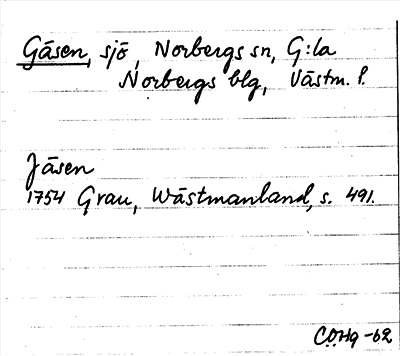 Gåsen, sjö, Norbergs sn, G:la
Norbergs blg, Västm. l.
Jäsen
1754 Grau, Wästmanland, s. 491.
COHq -62